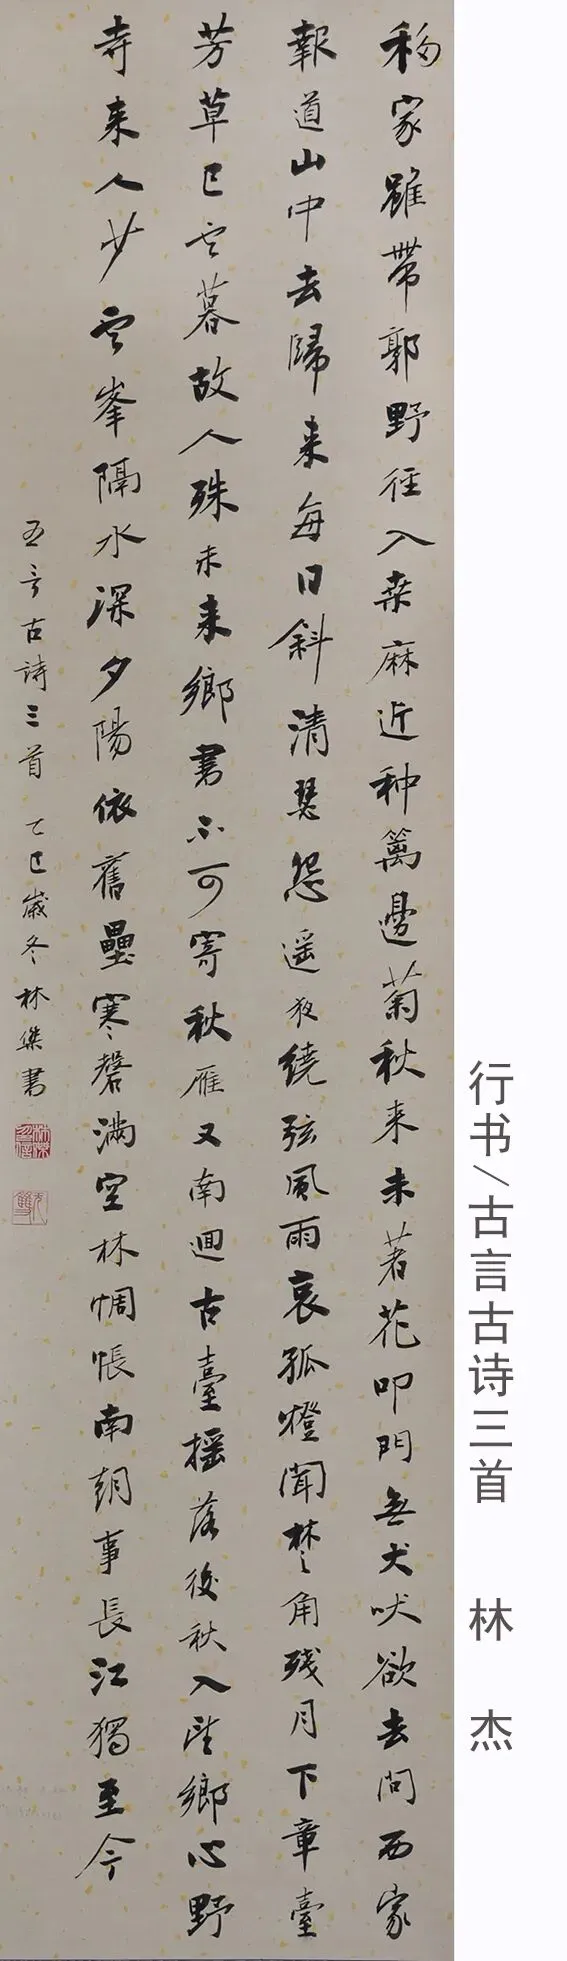 移家雖帶郭野徑入桑麻近种籬邊菊秋来未著花叩門無犬吠欲去問西家
報道山中去歸来每日斜清瑟怨遥夜繞弦風雨哀孤燈聞楚角残月下章臺
芳草已云暮故人殊未来鄉書不可寄秋雁又南迴古臺摇落後秋入望鄉心野
寺来人少云峯隔水深夕陽依舊壘寒磬滿空林惆悵南朝事長江獨至今
五言古詩三首 乙巳歲冬林傑書
行书/古言古诗三首 林杰